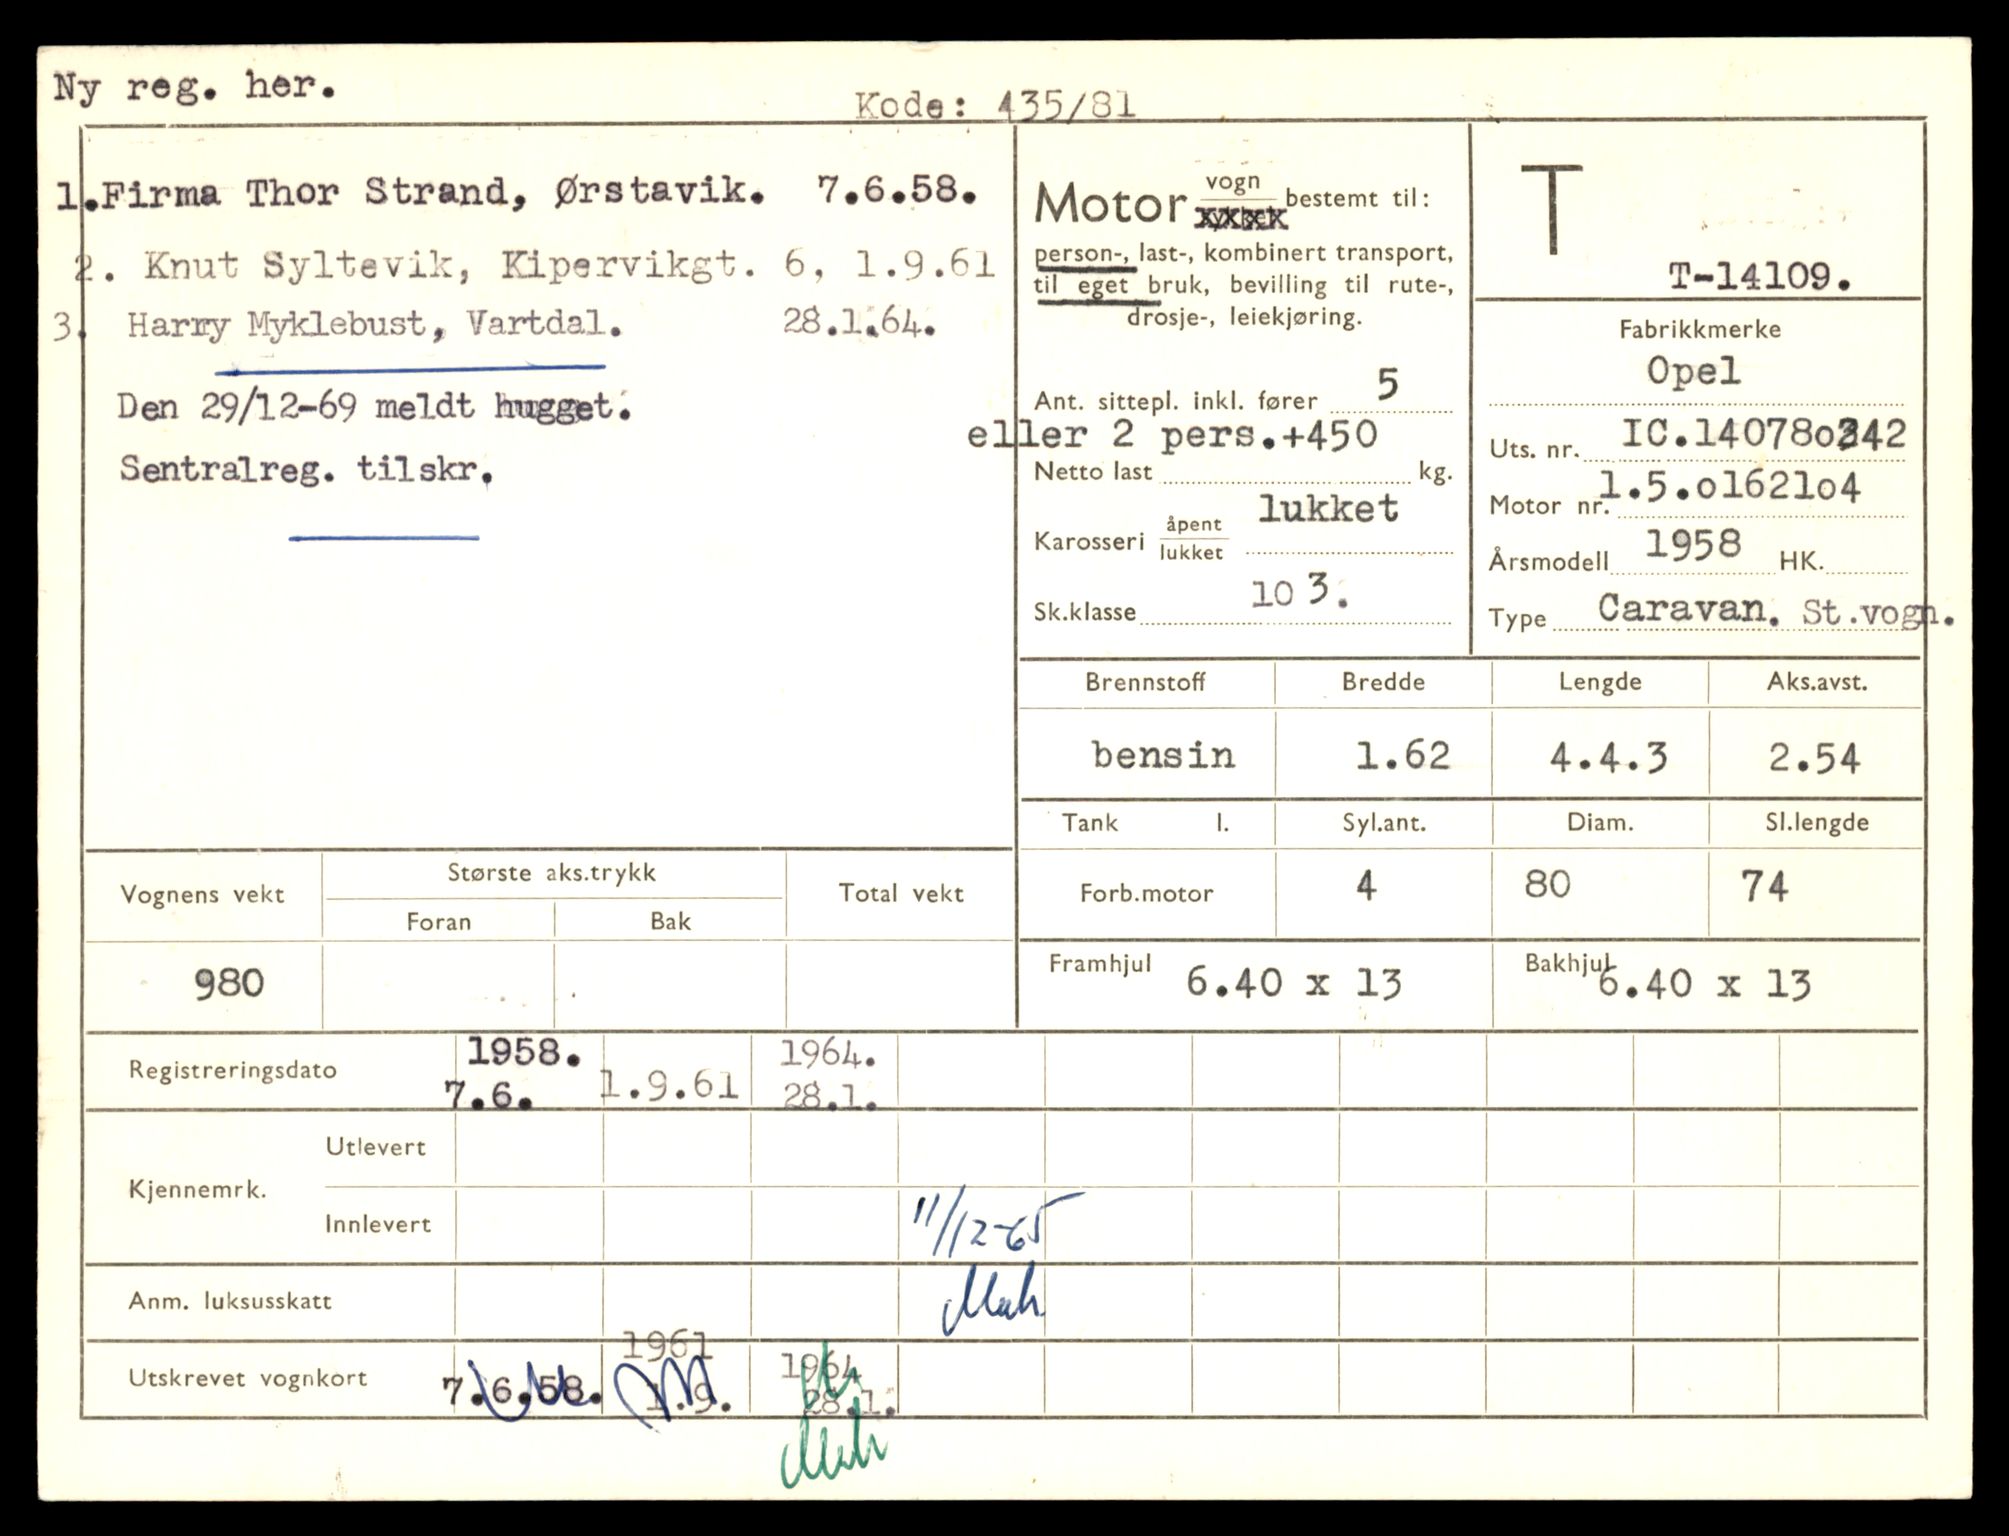 Ny reg. her.
Kode: 435/81
1. Firma Thor Strand, Ørstavik. 7.6.58.
2. Knut Syltevik, Kipervikgt. 6, 1.9.61
3. Harry Myklebust, Vartdal. 28.1.64.
Den 29/12-69 meldt hugget.
Sentralreg. tilskr.
Motor vogn bestemt til:
person-, last-, kombinert transport,
til eget bruk, bevilling til rute-,
drosje-, leiekjøring.
Ant. sittepl. inkl. fører 5
eller 2 pers.+450
Netto last kg.
Karosseri åpent lukket lukket
Sk.klasse 10 3.
T
T-14109.
Fabrikkmerke
Opel
Uts. nr. IC.140780342
Motor nr. 1.5.0162104
Årsmodell 1958 HK.
Type Caravan. St.vogn.
Brennstoff Bredde Lengde Aks.avst.
bensin 1.62 4.4.3 2.54
Tank l. Syl.ant. Diam. Sl.lengde
Forb.motor 4 80 74
Framhjul 6.40 x 13 Bakhjul 6.40 x 13
Vognens vekt Største aks.trykk Total vekt
Foran Bak
980
Registreringsdato 1958. 7.6. 1.9.61 1964. 28.1.
Kjennemrk. Utlevert
Innlevert 11/12-65
Anm. luksusskatt
Utskrevet vognkort 7.6.58. 1961 1.9. 1964 28.1.